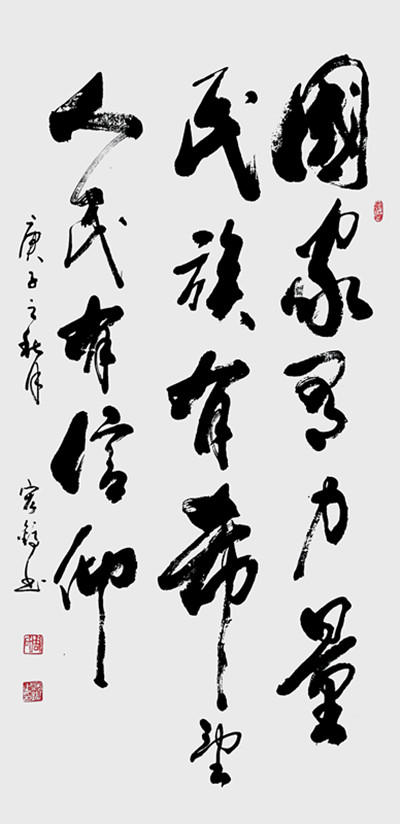 國家有力量
民族有希望
人民有信仰
庚子之秋月
书